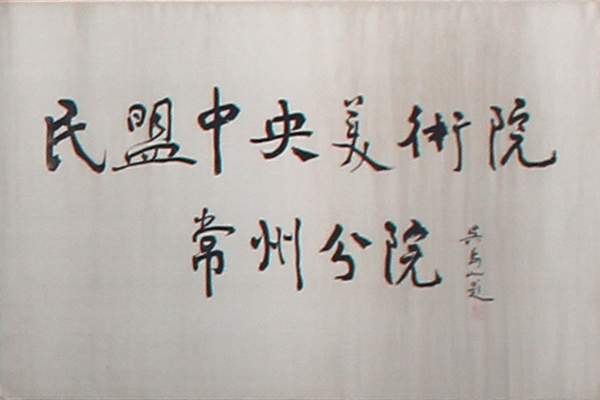 民盟中央美術院
常州分院
吴为山题